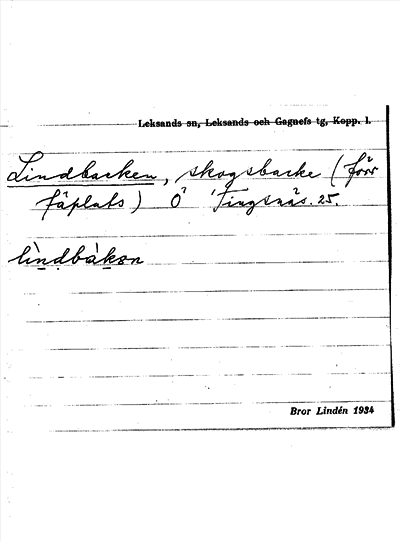 Leksands sn, Leksands och Gagnefs tg, Kopp. l.
Lindbacken, skogsbacke (förr
fäplats) Ö Tingsnäs. 25.
lìndbàkən
Bror Lindén 1934